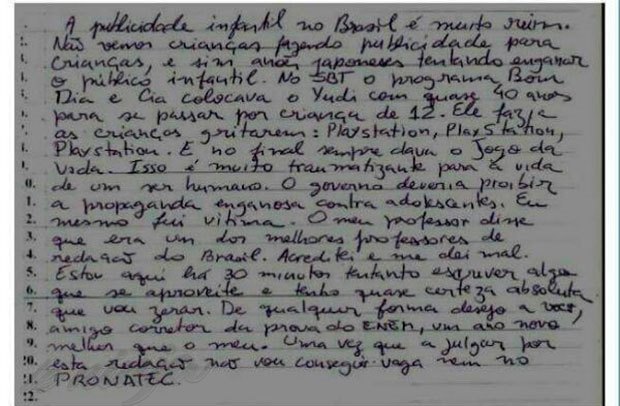 A publicidade infantil no Brasil é muito ruim.
Não vemos crianças fazendo publicidade para
crianças, e sim anões japoneses tentando enganar
o público infantil. No SBT o programa Bom
Dia e Cia colocava o Yudi com quase 40 anos
para se passar por criança de 12. Ele fazia
as crianças gritarem: Playstation, Playstation,
Playstation. E no final sempre dava o Jogo da
vida. Isso é muito traumatizante para a vida
0. de um ser humano. O governo deveria proibir
1. a propaganda enganosa contra adolescentes. Eu
2. mesmo fui vitima. O meu professor disse
3. que era um dos melhores professores de
4. redação do Brasil. Acreditei e me dei mal.
5. Estou aqui há 30 minutos tentanto escrever algo
6. que se aproveite e tenho quase certeza absoluta
7. que vou zerar. De qualquer forma desejo a você,
8. amigo corretor da prova do ENEM, um ano novo
9. melhor que o meu. Uma vez que a julgar por
20. esta redação não vou conseguir vaga nem no
21. PRONATEC.
22.